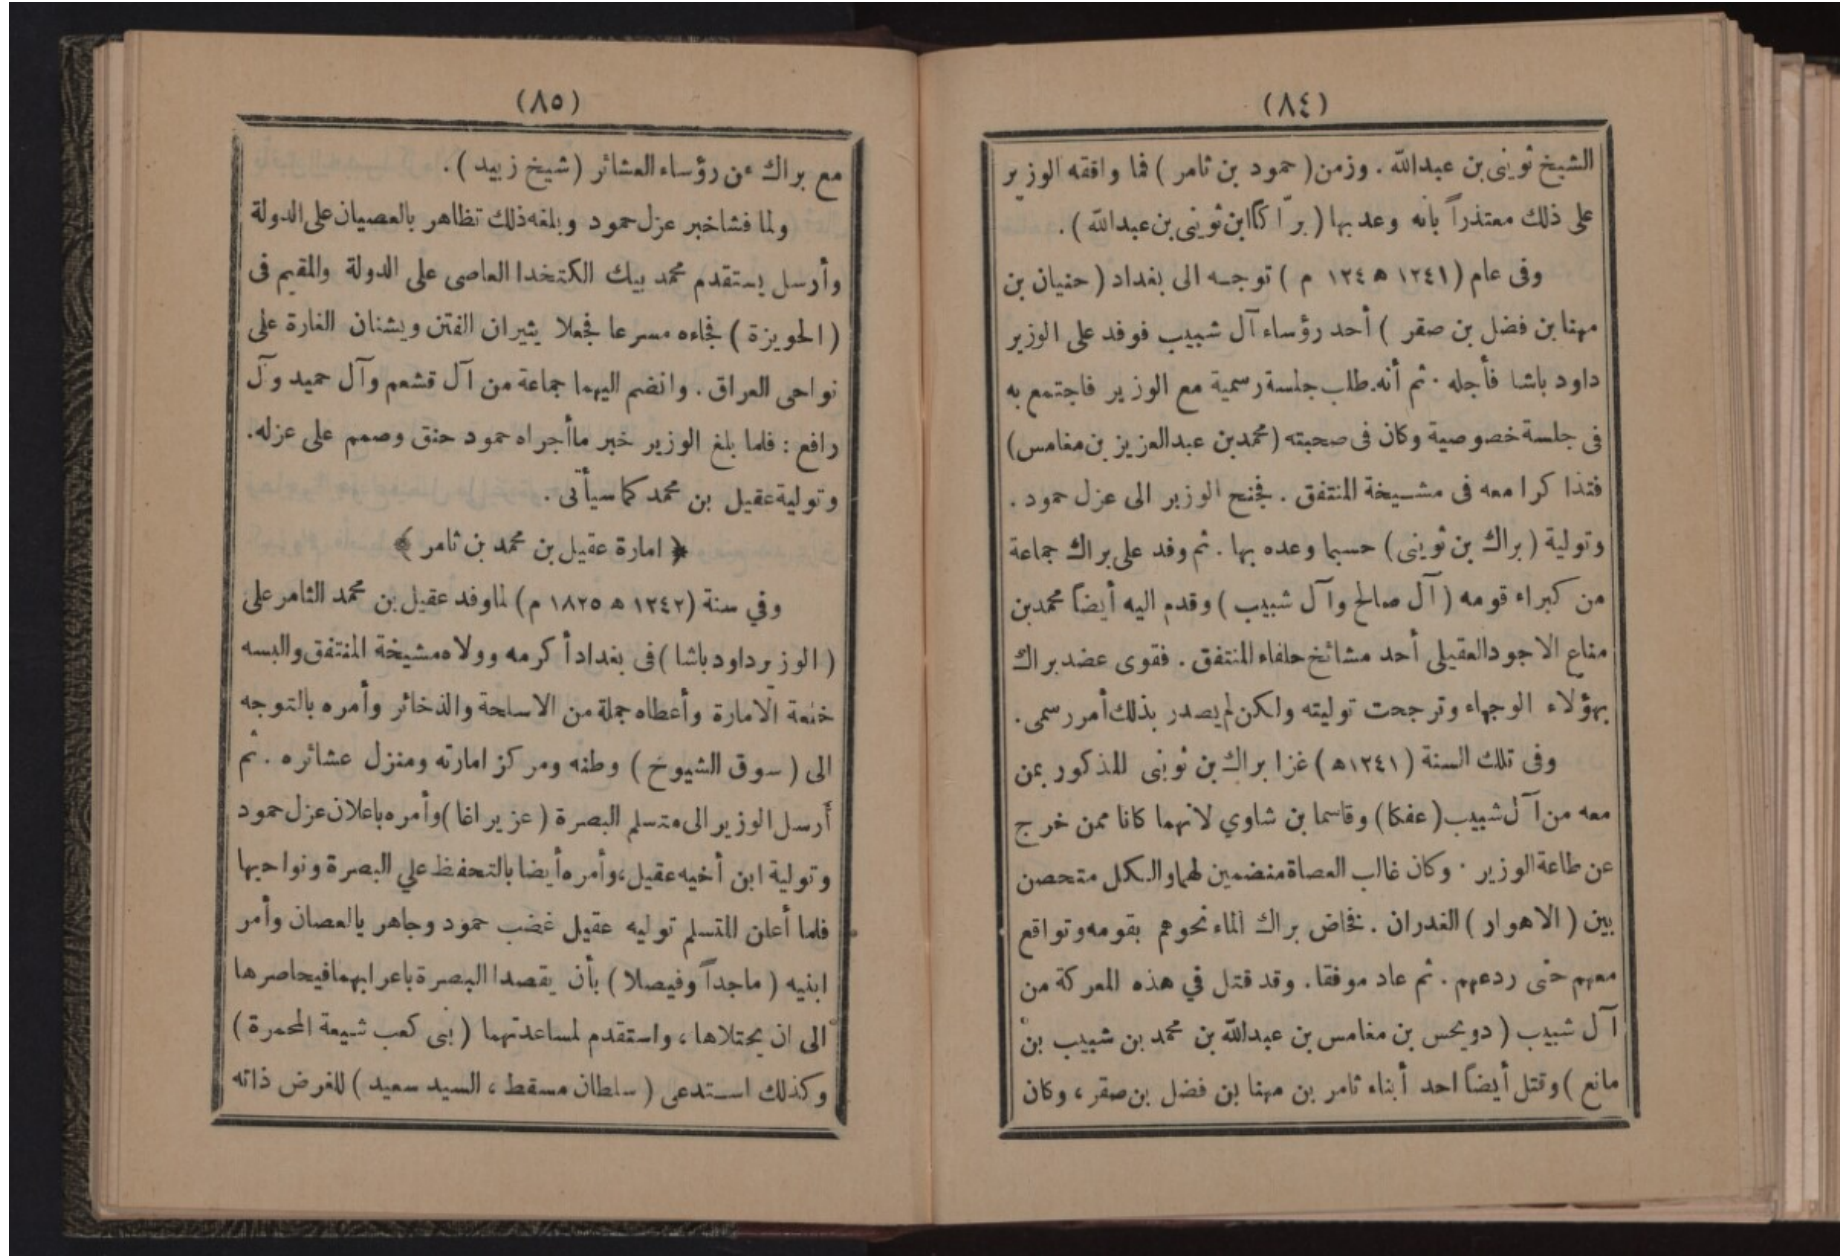 (٨٤)
الشيخ ثوينى بن عبدالله . وزمن ( حمود بن ثامر ) فما وافقه الوزير
على ذلك معتذراً بانه وعد بها ( برّاكا ابن ثوينى بن عبدالله ) .
وفى عام ( ١٢٤١ ه ١٢٤ م ) توجه الى بغداد ( حنيان بن
مهنا بن فضل بن صقر ) أحد رؤساء آل شبيب فوفد على الوزير
داود باشا فأجله . ثم أنه طلب جلسة رسمية مع الوزير فاجتمع به
فى جلسة خصوصية وكان فى صحبته ( محمد بن عبد العزيز بن مغامس )
فتذا كرا معه فى مشيخة المنتفق . فجنح الوزير الى عزل حمود .
وتولية ( براك بن ثوينى ) حسبما وعده بها . ثم وفد على براك جماعة
من كبراء قومه ( آل صالح وآل شبيب ) وقدم اليه أيضاً محمد بن
مناع الاجود العقيلى أحد مشائخ حلفاء المنتفق . فقوى عضد براك
بهؤلاء الوجهاء وترجحت توليته ولكن لم يصدر بذلك أمر رسمى .
وفى تلك السنة ( ١٢٤١ه ) غزا براك بن ثوينى المذكور بمن
معه من آل شبيب ( عفكا ) وقاسما بن شاوي لانهما كانا ممن خرج
عن طاعة الوزير . وكان غالب العصاة منضمين لهما والكل متحصن
بين ( الاهوار ) الغدران . نخاض براك الماء نحوهم بقومه وتواقع
معهم حتى ردعهم . ثم عاد موفقا . وقد قتل في هذه المعركة من
آل شبيب ( دويحس بن مغامس بن عبدالله بن محمد بن شبيب بن
مانع ) وقتل أيضاً احد أبناء ثامر بن مهنا بن فضل بن صقر ، وكان
(٨٥)
مع براك من رؤساء العشائر ( شيخ زبيد ) .
ولما فشا خبر عزل حمود وبلغه ذلك تظاهر بالعصيان على الدولة
وأرسل يستقدم محمد بيك الكتخدا العاصى على الدولة والمقيم فى
( الحويزة ) فجاءه مسرعا فجعلا يثيران الفتن ويشنان الغارة على
نواحى العراق . وانضم اليهما جماعة من آل قشعم وآل حميد وآل
رافع : فلما بلغ الوزير خبر ما أجراه حمود حنق وصمم على عزله.
وتولية عقيل بن محمد كما سيأتى .
﴿ امارة عقيل بن محمد بن ثامر ﴾
وفي سنة ( ١٢٤٢ ه ١٨٢٥ م ) لما وفد عقيل بن محمد الثامر على
( الوزير داود باشا ) فى بغداد أكرمه وولاه مشيخة المنتفق والبسه
خلعة الامارة وأعطاه جملة من الاسلحة والذخائر وأمره بالتوجه
الى ( سوق الشيوخ ) وطنه ومركز امارته ومنزل عشائره . ثم
أرسل الوزير الى متسلم البصرة ( عزير اغا ) وأمره باعلان عزل حمود
وتولية ابن أخيه عقيل، وأمره أيضا بالتحفظ علي البصرة ونواحيها
فلما أعلن المتسلم توليه عقيل غضب حمود وجاهر بالعصان وأمر
ابنيه ( ماجداً وفيصلا ) بأن يقصدا البصرة باعرابهما فيحاصرها
الى ان يحتلاها ، واستقدم لمساعدتهما ( بنى كعب شيعة المحمرة )
وكذلك استدعى ( سلطان مسقط ، السيد سعيد ) للغرض ذاته